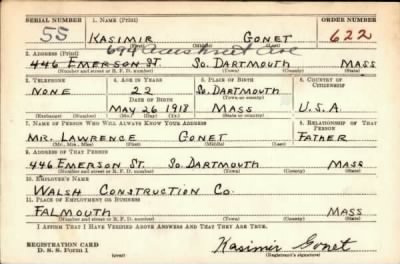 SERIAL NUMBER 1. NAME (Print) ORDER NUMBER
55 KASIMIR GONET 622
(First) (Middle) (Last)
2. ADDRESS (Print) 694
446 EMERSON ST. SO. DARTMOUTH MASS
(Number and street or R. F. D. number) (Town) (County) (State)
3. TELEPHONE 4. AGE IN YEARS 5. PLACE OF BIRTH 6. COUNTRY OF CITIZENSHIP
NONE 22 SO. DARTMOUTH
DATE OF BIRTH (Town or county)
MAY 26 1918 MASS U.S.A.
(Exchange) (Number) (Mo.) (Day) (Yr.) (State or country)
7. NAME OF PERSON WHO WILL ALWAYS KNOW YOUR ADDRESS 8. RELATIONSHIP OF THAT PERSON
MR. LAWRENCE GONET FATHER
(Mr., Mrs., Miss) (First) (Middle) (Last)
9. ADDRESS OF THAT PERSON
446 EMERSON ST. SO. DARTMOUTH MASS
(Number and street or R. F. D. number) (Town) (County) (State)
10. EMPLOYER'S NAME
WALSH CONSTRUCTION CO.
11. PLACE OF EMPLOYMENT OR BUSINESS
FALMOUTH MASS
(Number and street or R. F. D. number) (Town) (County) (State)
I AFFIRM THAT I HAVE VERIFIED ABOVE ANSWERS AND THAT THEY ARE TRUE.
REGISTRATION CARD
D. S. S. Form 1 (over) Kasimir Gonet
(Registrant's signature)